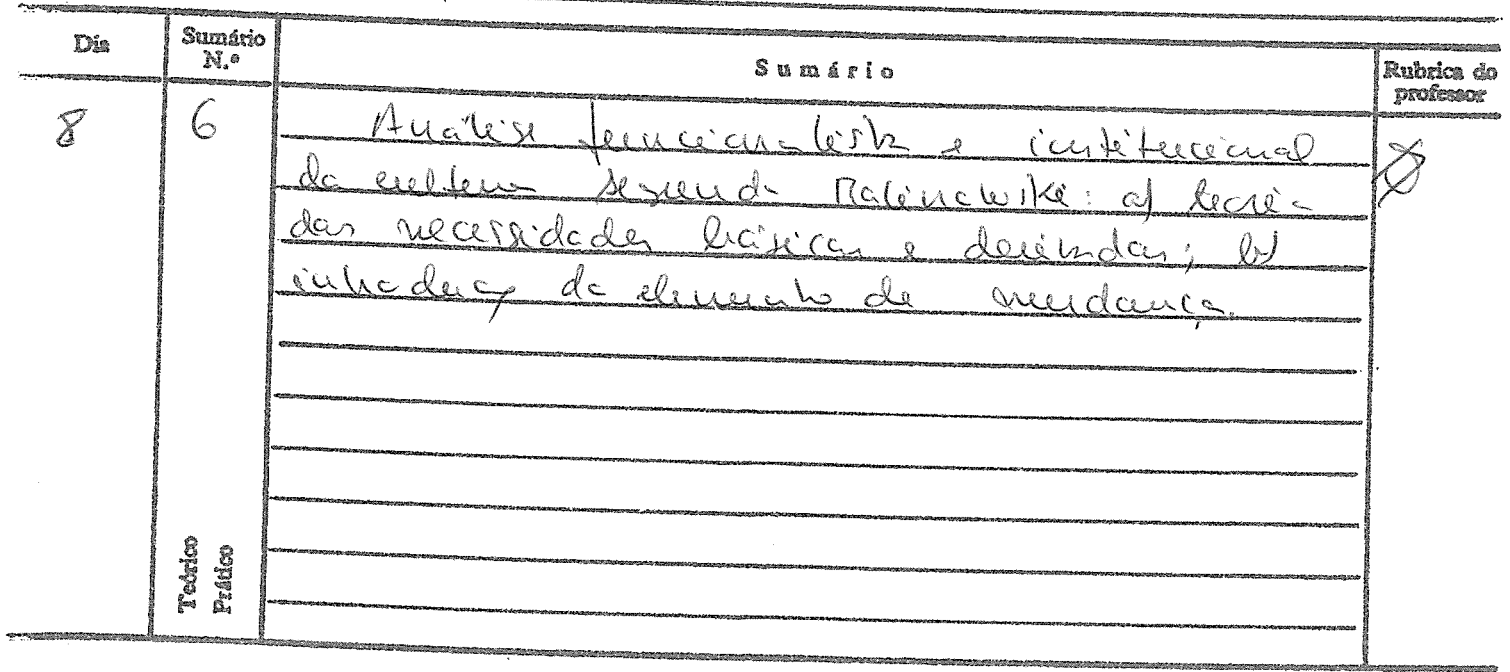 Dia
Sumário N.º
Sumário
Rubrica do professor
8
6
Análise funcionalista e institucional
da cultura segundo Malinowski: a) teoria
das necessidades básicas e derivadas; b)
introdução do elemento de mudança.
Teórico
Prático